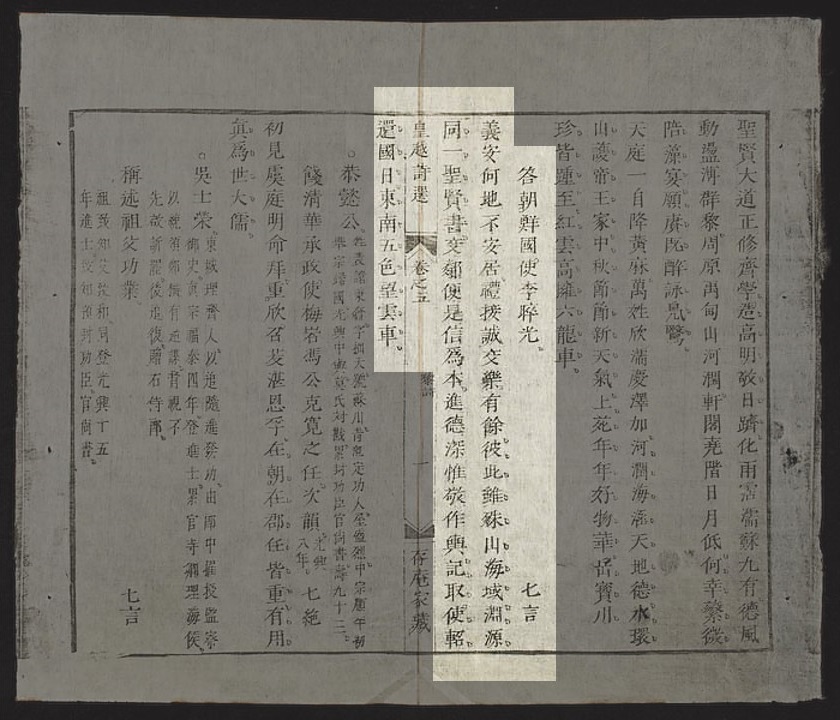 聖賢大道正修齊學造高明敬日躋化雨霑濡蘇九有德風
動盪溥群黎周原禹甸山河濶軒閣堯階日月低何幸蘩微
陪藻宴願賡既醉詠鳧鷖
天庭一自降黄麻萬姓欣霑慶澤加河潤海涵天地德水環
山護帝王家中秋節節新天氣上苑年年好物華岳寶川
珍皆踵至紅雲高擁六龍車
答朝鮮國使李睟光 七言
義安何地不安居禮接誠交樂有餘彼此雖殊山海域淵源
同一聖賢書交鄰便是信爲本進德深惟敬作輿記取使軺
皇越詩選 卷之五 黎詩 一 存庵家藏
還國日東南五色望雲車
恭懿公
餞清華承政使梅岩馮公克寬之任次韻 光興八年 七絶
初見虞庭明命拜重欣召芨湛恩孚在朝在郡任皆重有用
真爲世大儒
吳士榮
稱述祖父功業 七言
祖致知父 和同登光興十五
年進士致知預封功臣官尚書